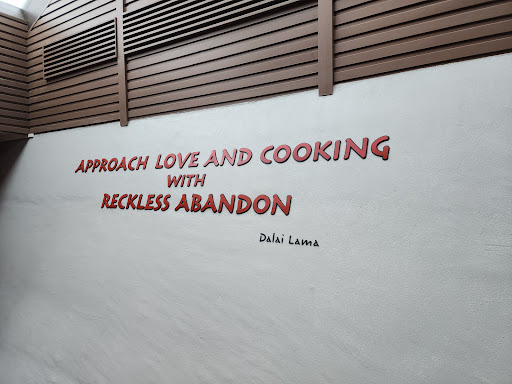 APPROACH LOVE AND COOKING
WITH
RECKLESS ABANDON
Dalai Lama